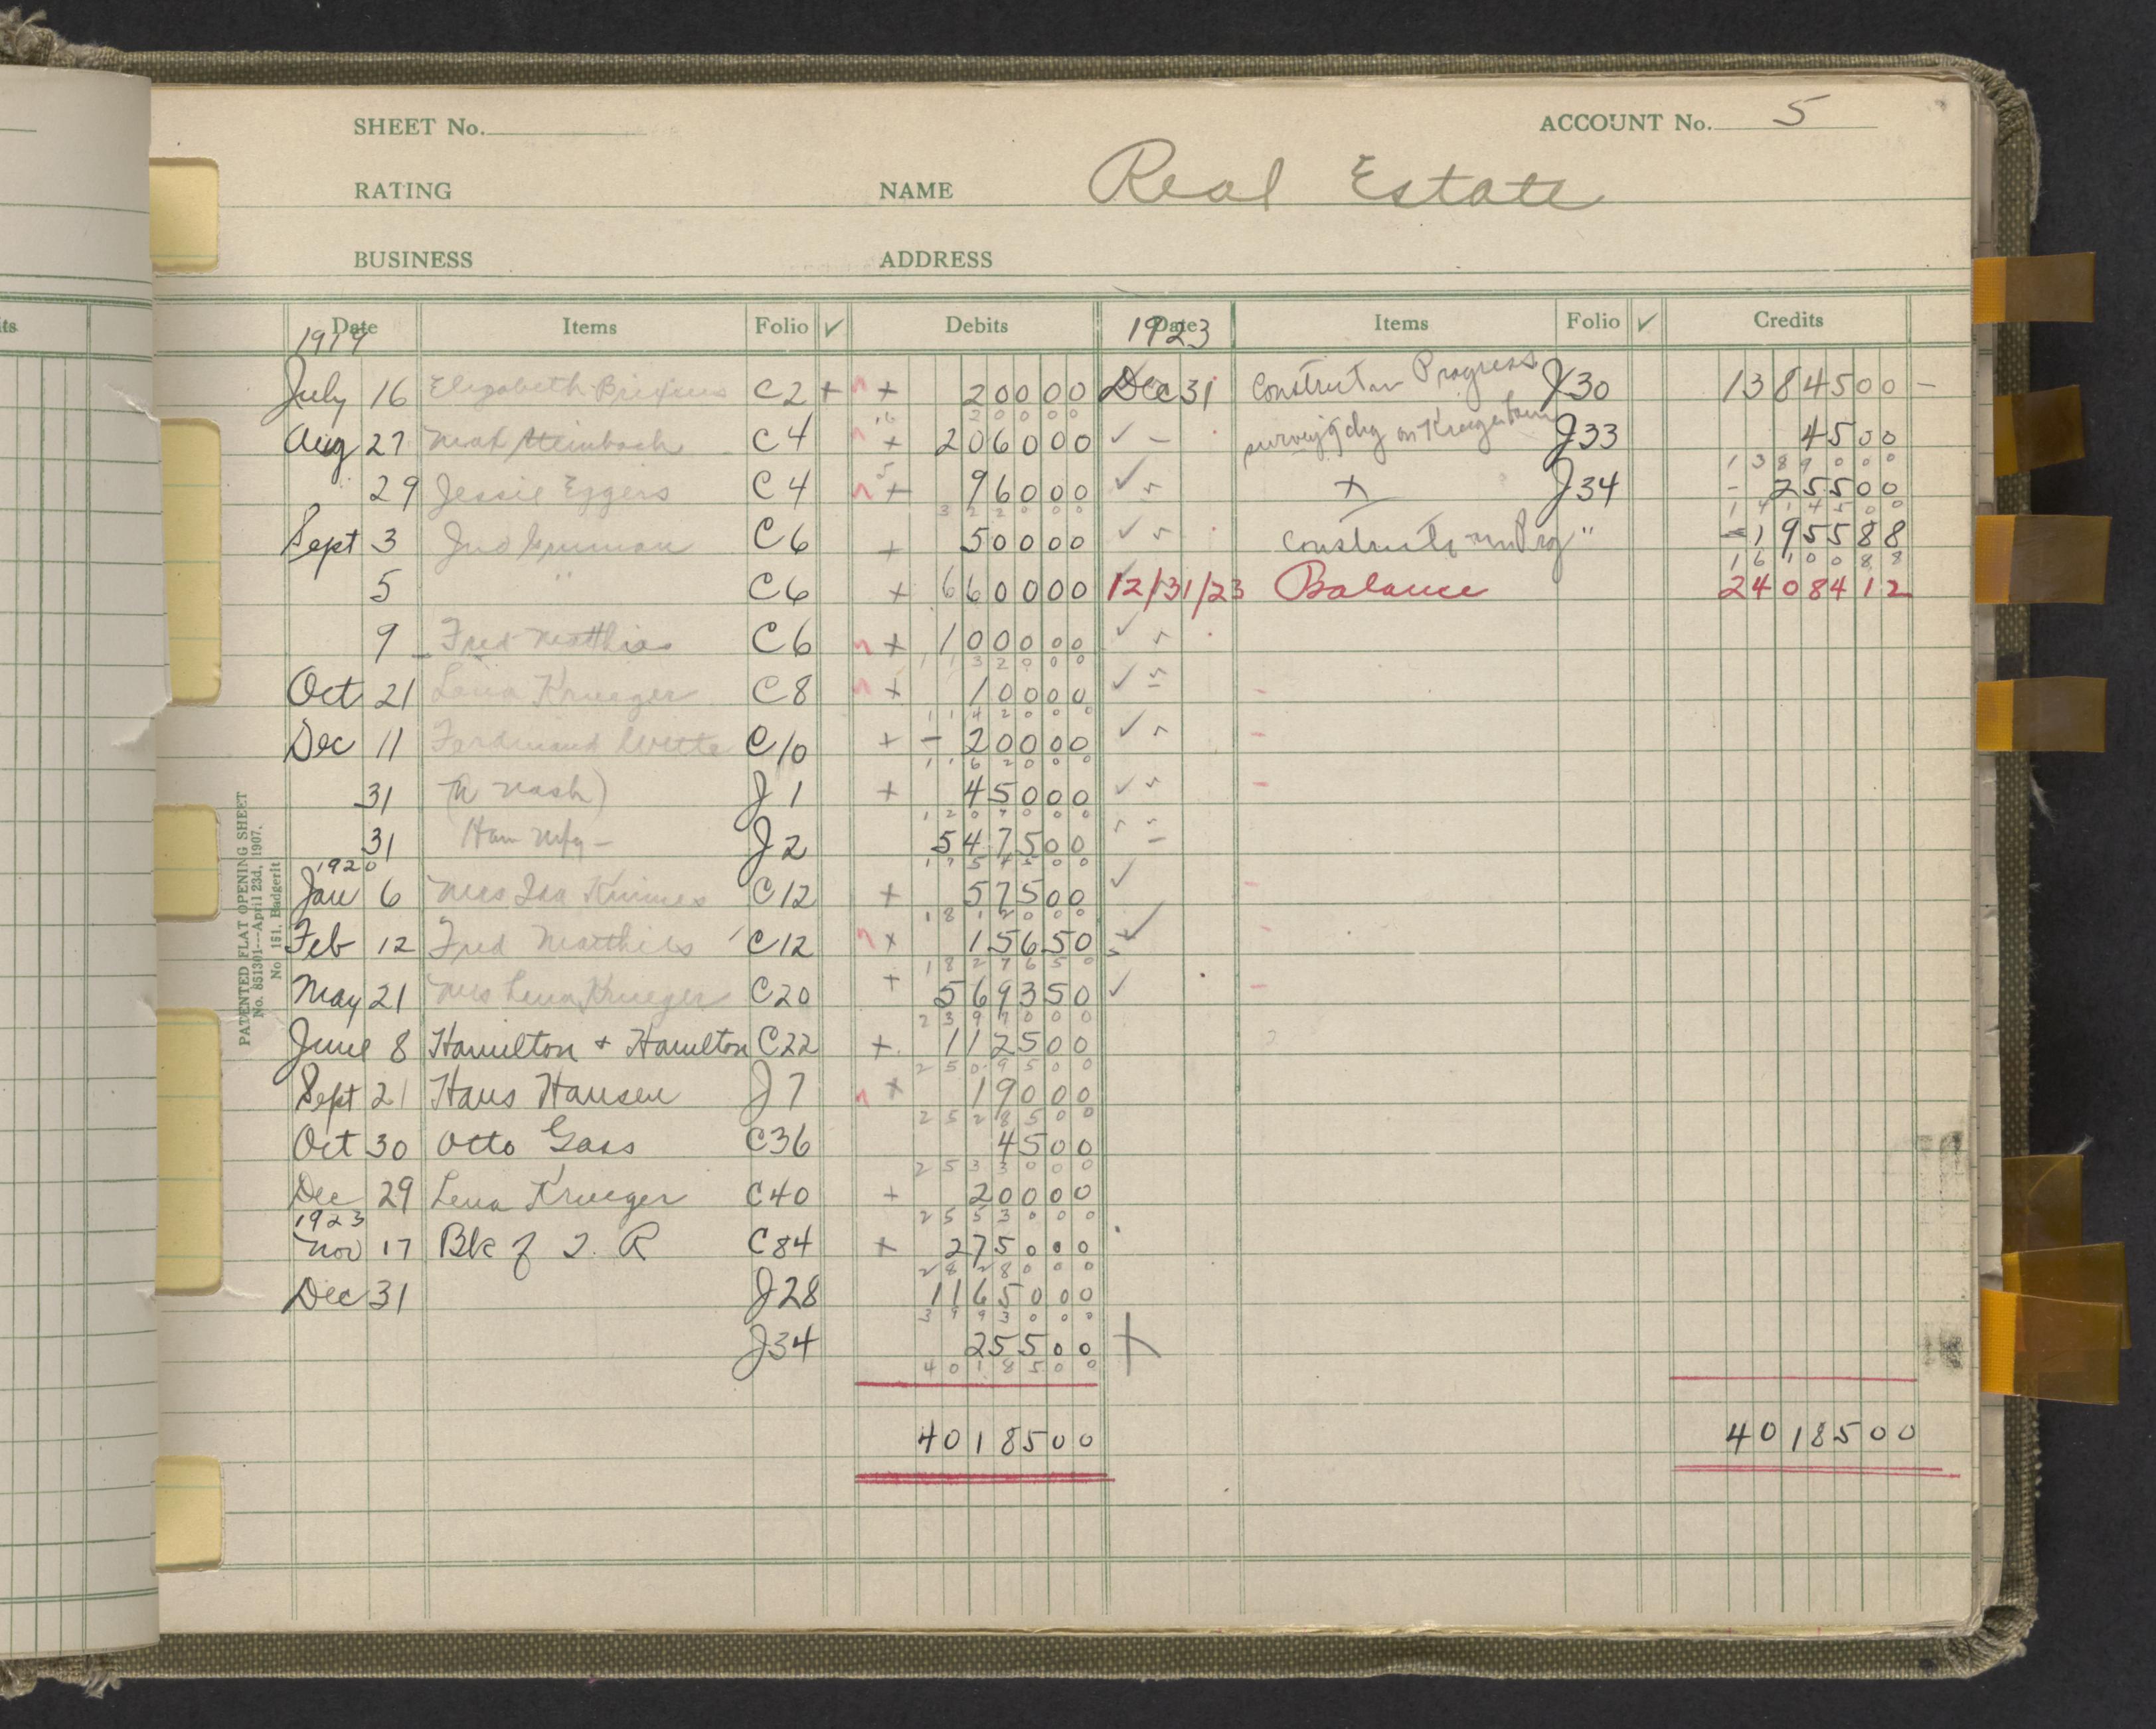 ts
SHEET No.
ACCOUNT No. 5
RATING
NAME Real Estate
BUSINESS
ADDRESS
Date Items Folio ✓ Debits Date Items Folio ✓ Credits
1919 1923
July 16 Elizabeth C2 + + 20000 Dec 31 Construction Progress J30 1384500 –
20000
Aug 27 C4 + 206000 ✓ – survey'g chg on Krueger farm J33 4500
1389000
29 Jessie Eggers C4 + 96000 ✓ + J34 – 25500
322000 1414500
Sept 3 Jno C6 + 50000 ✓ Construction Prog " 195588
1610088
5 " C6 + 660000 12/31/23 Balance 2408412
9 Fred Matthies C6 + 100000 ✓
1132000
Oct 21 Lena Krueger C8 + 10000 ✓
1142000
Dec 11 Ferdinand Witte C10 + – 20000 ✓
1162000
31 Nash) J1 + 45000 ✓
1207000
31 Ham Mfg – J2 547500
1754500
1920
Jan 6 Mrs Ida C12 + 57500 ✓
1812000
Feb 12 Fred Matthies C12 x 15650 ✓
1827650
May 21 Mrs Lena Krueger C20 + 569350 ✓
2397000
June 8 Hamilton + Hamilton C22 + 112500
2509500
Sept 21 Hans Hansen J7 x 19000
2528500
Oct 30 Otto Gass C36 4500
2533000
Dec 29 Lena Krueger C40 + 20000
2553000
1923
Nov 17 Bk of T. R C84 + 275000
2828000
Dec 31 J28 1165000
3993000
J34 25500 +
4018500
4018500 4018500
PATENTED FLAT OPENING SHEET
No. 851301—April 23d, 1907.
No 151, Badgerit